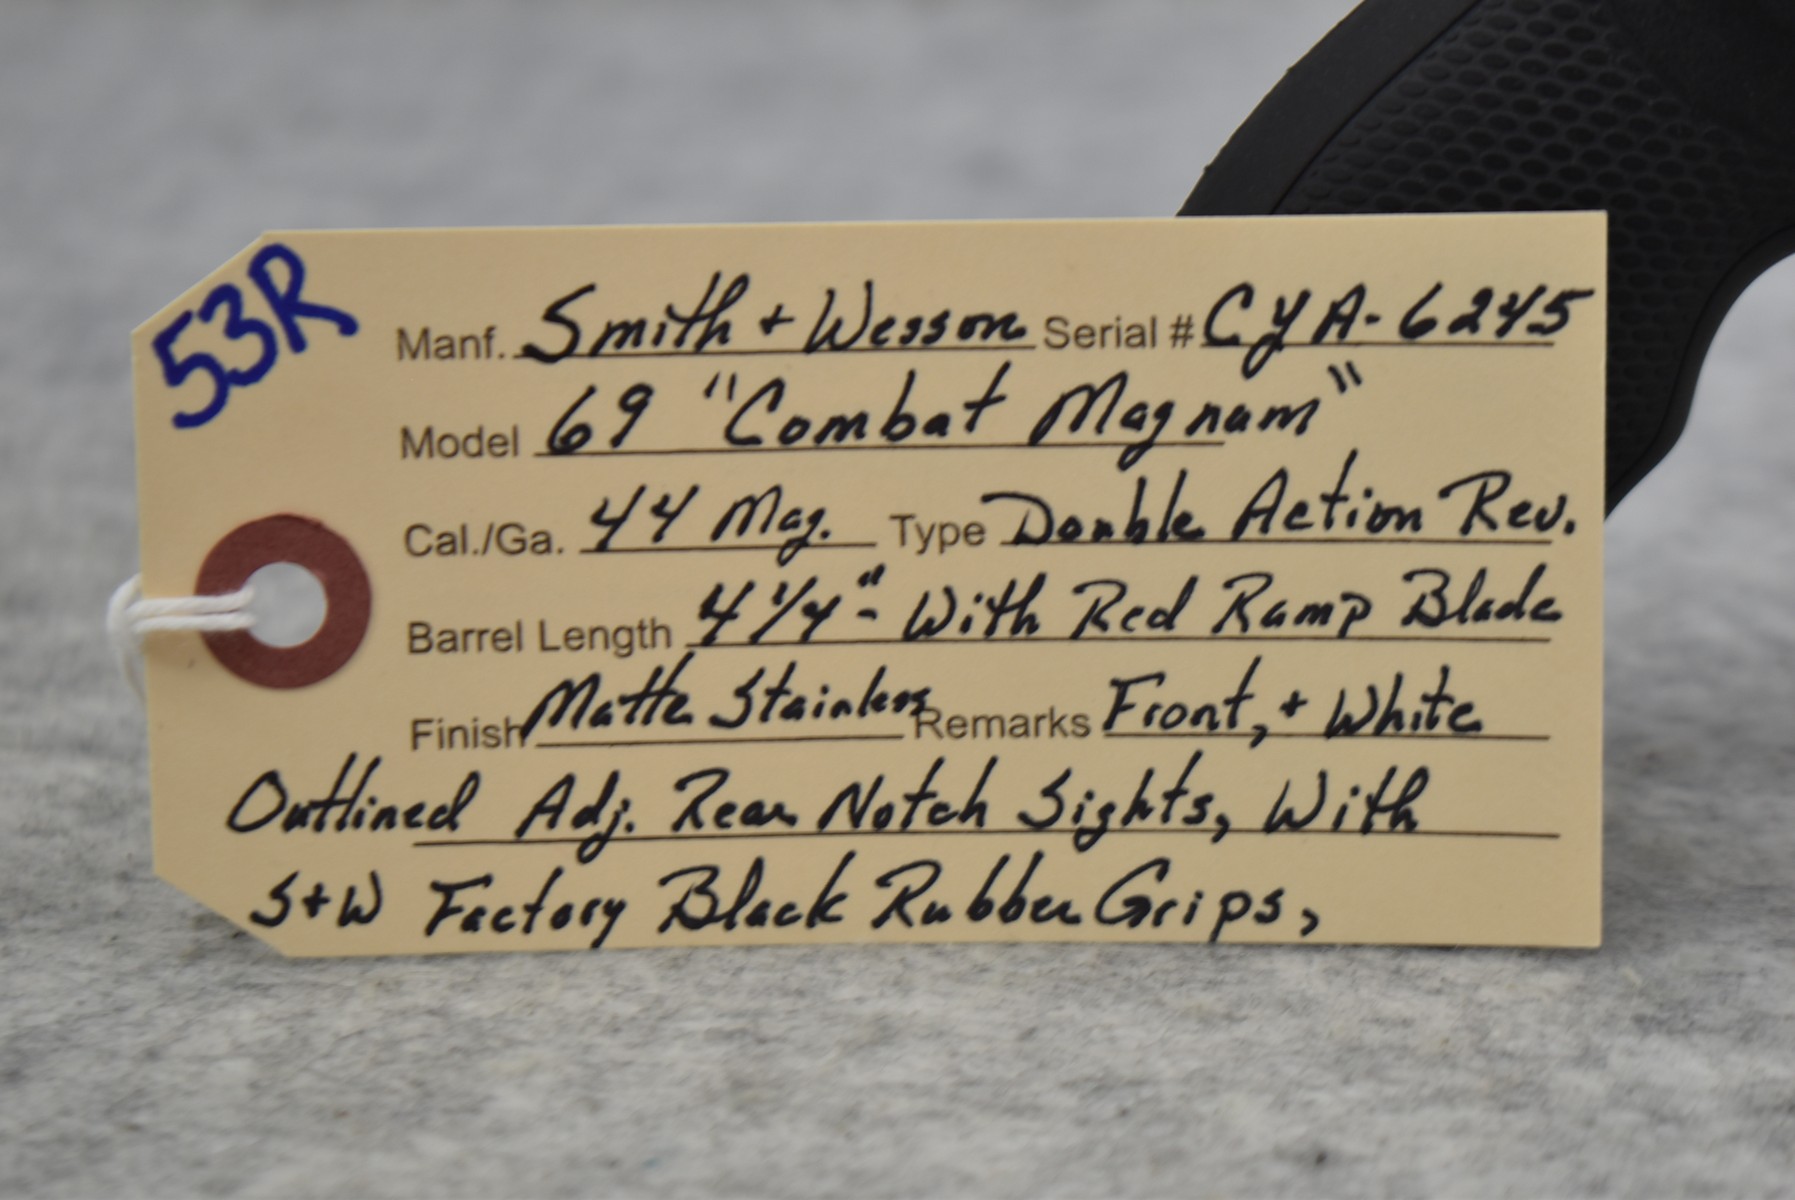 53R
Manf. Smith + Wesson Serial # CYA-6245
Model 69 "Combat Magnum"
Cal./Ga. 44 Mag. Type Double Action Rev.
Barrel Length 4 1/4"- With Red Ramp Blade
Finish Matte Stainless Remarks Front, + White
Outlined Adj. Rear Notch Sights, With
S+W Factory Black Rubber Grips,